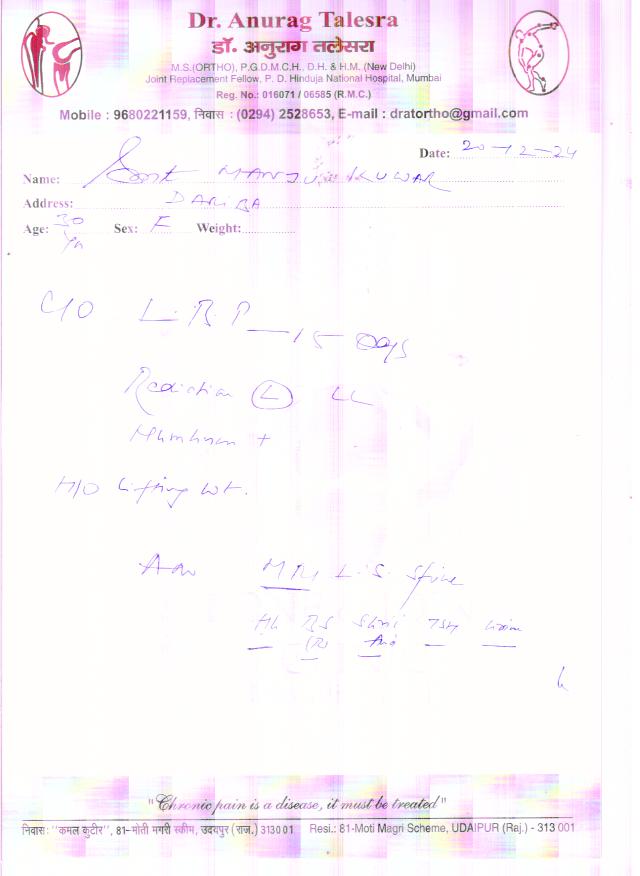 Dr. Anurag Talesra
डॉ. अनुराग तलेसरा
M.S.(ORTHO), P.G.D.M.C.H., D.H. & H.M. (New Delhi)
Joint Replacement Fellow, P. D. Hinduja National Hospital, Mumbai
Reg. No.: 016071 / 06585 (R.M.C.)
Mobile : 9680221159, निवास : (0294) 2528653, E-mail : dratortho@gmail.com
Date: 20-12-24
Name: Smt MANJU KUWAR
Address: DARIBA
Age: 30 Yr Sex: F Weight:
C/O L.B.P - 15 Days
Radiation (L) LL
Numbness +
H/O Lifting wt.
Adv MRI L.S. Spine
Hb BS TSH Urine
(R)
"Chronic pain is a disease, it must be treated"
निवास : "कमल कुटीर", 81-मोती मगरी स्कीम, उदयपुर (राज.) 313001 Resi.: 81-Moti Magri Scheme, UDAIPUR (Raj.) - 313 001